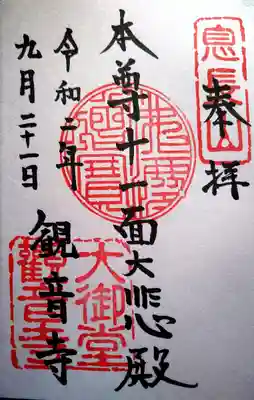 息長山
奉拝
本尊十一面大悲殿
大御堂
觀音寺
観音寺
令和二年
九月二十一日